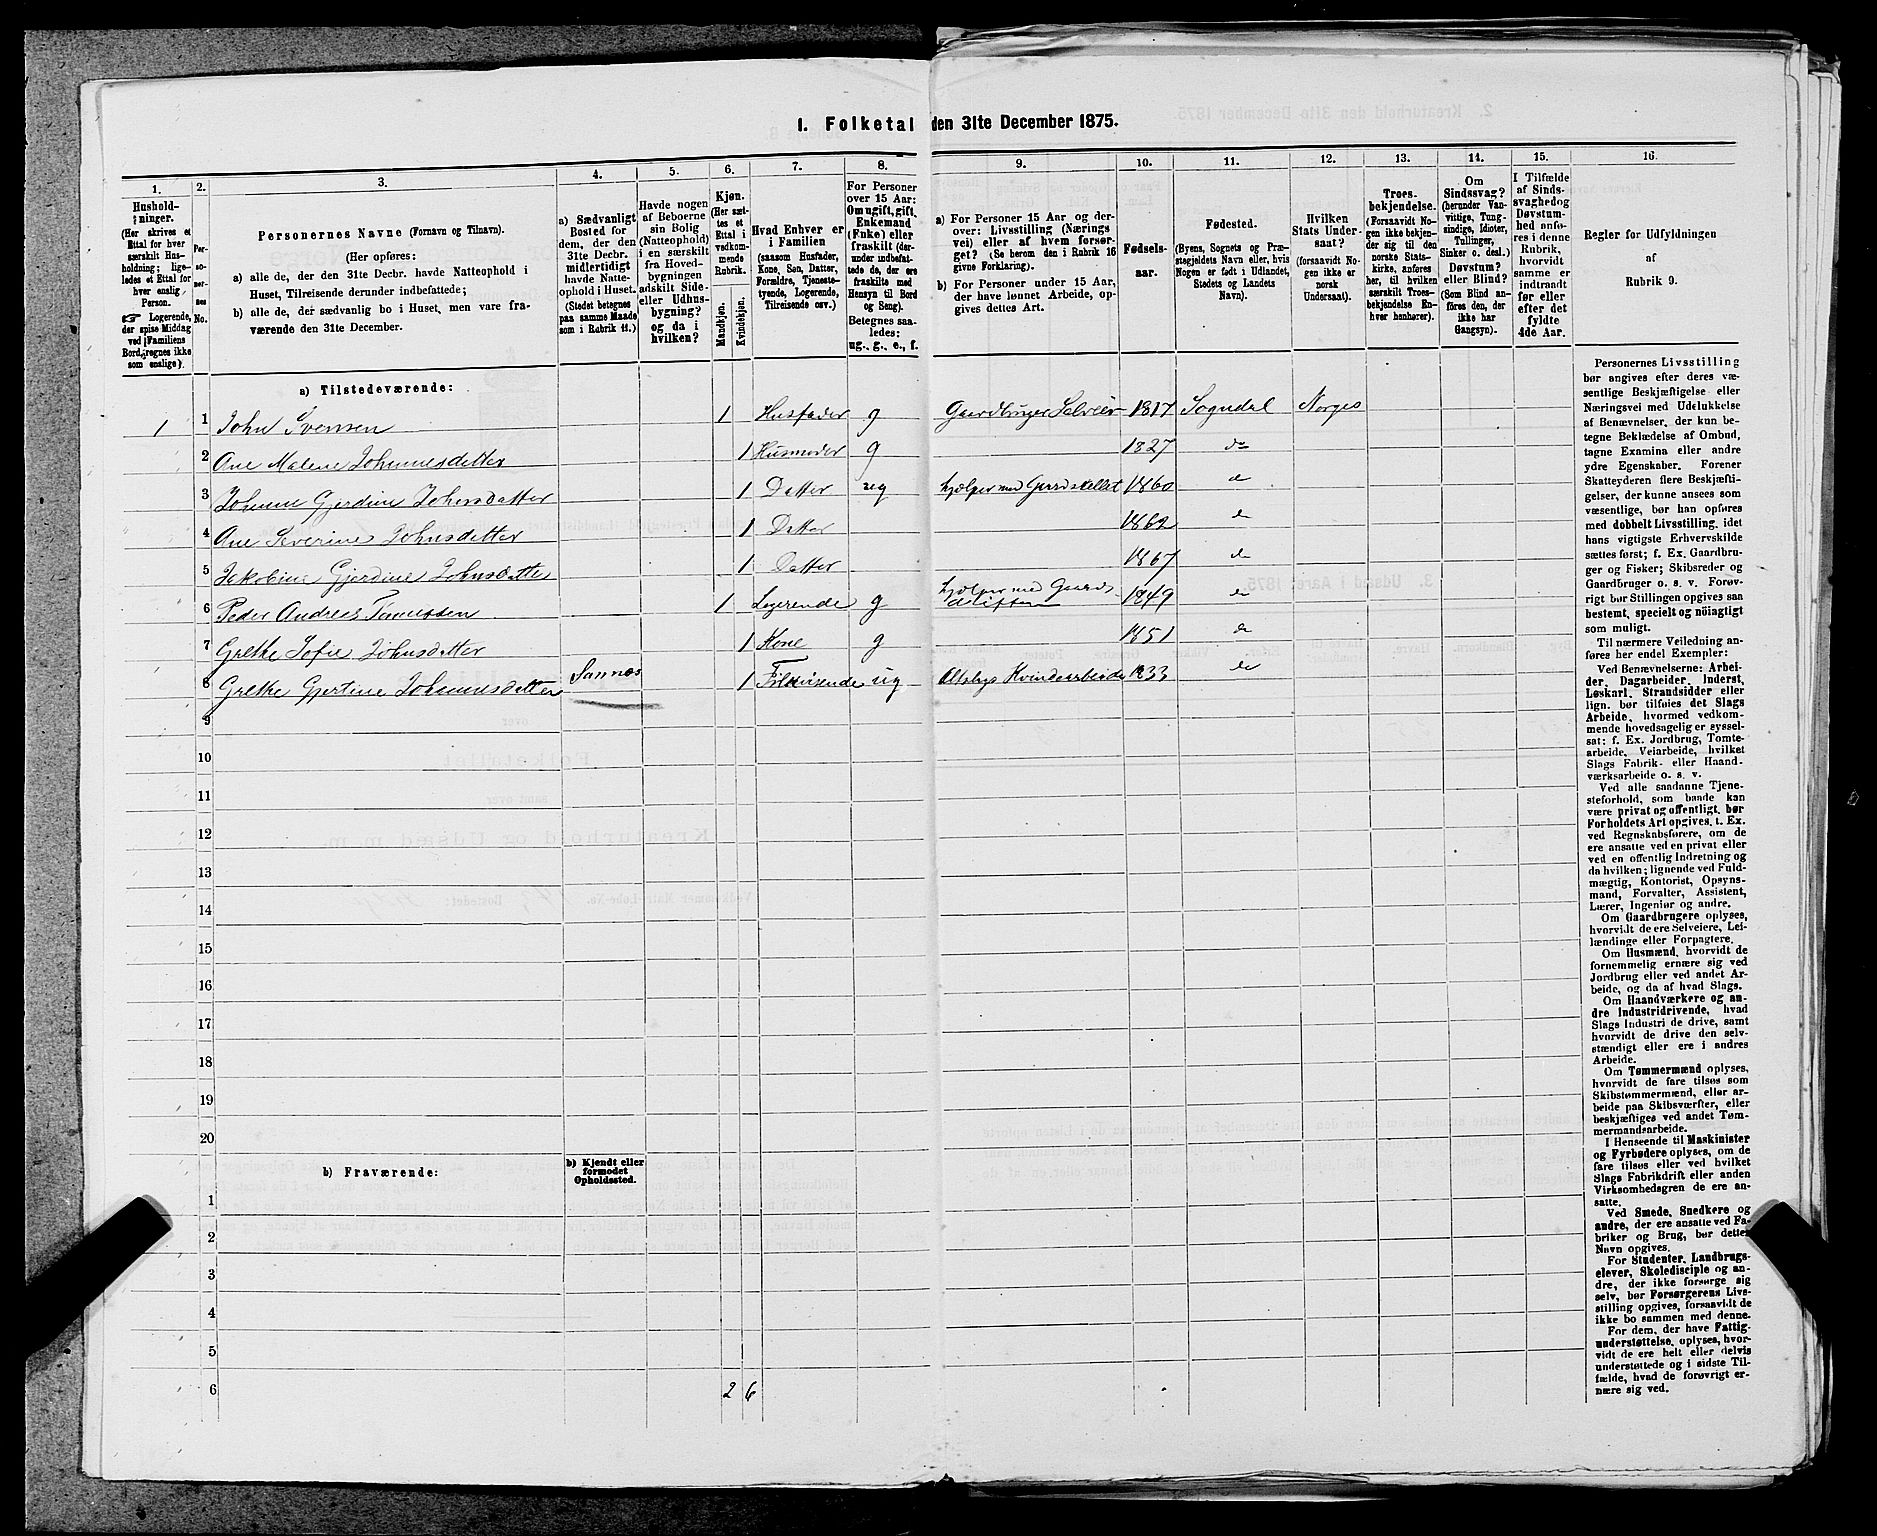 I. Folketal den 31te December 1875.
1.
Hushold-
ninger.
(Her skrives et
Ettal for hver
særskilt Hus-
holdning; lige-
ledes et Ettal for
hver enslig
Person.
☞ Logerende,
der spise Middag
ved Familiens
Bord, regnes ikke
som enslige).
2.
Per-
so-
ner-
nes
No.
3.
Personernes Navne (Fornavn og Tilnavn).
(Her opføres:
a) alle de, der den 31te Decbr. havde Natteophold i
Huset, Tilreisende derunder indbefattede;
b) alle de, der sædvanlig bo i Huset, men vare fra-
værende den 31te December.
4.
a) Sædvanligt
Bosted for
dem, der den
31te Decbr.
midlertidigt
havde Natte-
ophold i Huset.
(Stedet betegnes
paa samme Maade
som i Rubrik 11.)
5.
Havde nogen
af Beboerne
sin Bolig
(Natteophold)
i en særskilt
fra Hoved-
bygningen
adskilt Side-
eller Udhus-
bygning?
og da i
hvilken?
6.
Kjøn.
(Her sæt-
tes et
Ettal i
vedkom-
mende
Rubrik.
Mandkjøn.
Kvindekjøn.
7.
Hvad Enhver er
i Familien
(saasom Husfader,
Kone, Søn, Datter,
Forældre, Tjeneste-
tyende, Logerende,
Tilreisende osv.)
8.
For Personer
over 15 Aar:
Om ugift, gift,
Enkemand
(Enke) eller
fraskilt (der-
under indbefat-
tede de, der ere
fraskilte med
Hensyn til Bord
og Seng).
Betegnes saa-
ledes:
ug., g., e., f.
9.
a) For Personer 15 Aar og der-
over: Livsstilling (Nærings
vei) eller af hvem forsør-
get? (Se herom den i Rubrik 16
givne Forklaring).
b) For Personer under 15 Aar,
der have lønnet Arbeide, op-
gives dettes Art.
10.
Fødsels-
aar.
11.
Fødested.
(Byens, Sognets og Præ-
stegjeldets Navn eller, hvis
Nogen er født i Udlandet,
Stedets og Landets
Navn).
12.
Hvilken
Stats Under-
saat?
(forsaavidt No-
gen ikke er
norsk
Undersaat).
13.
Troes-
bekjendelse.
(Forsaavidt No-
gen ikke bekjen-
der sig til den
norske Stats-
kirke, anføres
her, til hvilken
særskilt Troes-
bekjendelse En-
hver henhører).
14.
Om
Sindssvag?
(herunder Van-
vittige, Tung-
sindige, Idioter,
Tullinger,
Sinker o. desl.)
Døvstum?
eller Blind?
(Som Blind an-
føres den, der
ikke har
Gangsyn).
15.
I Tilfælde
af Sinds-
svaghed og
Døvstum-
hed anfø-
res i denne
Rubrik,
hvorvidt
samme er
indtraadt
før eller
efter det
fyldte
4de Aar.
16.
Regler for Udfyldningen
af
Rubrik 9.
a) Tilstedeværende:
1 1 John Svensen 1 Husfader g Gaardbruger Selveier 1817 Sogndal Norges
2 Ane Malene Johannesdatter 1 Husmoder g 1827 do
3 Johanne Gjerdine Johnsdatter 1 Datter ug hjælper med Gaardstellet 1860 do
4 Ane Severine Johnsdatter 1 Datter 1862 do
5 Jakobine Gjerdine Johnsdatter 1 Datter 1867 do
6 Peder Andreas 1 Logerende g hjælper med Gaards- 1849 do
7 Grethe Sofie Johnsdatter 1 Kone g 1851 do
8 Grethe Gjertine Johannesdatter Sannes 1 Tilreisende ug Kvindearbeide 1833 do
9
10
11
12
13
14
15
16
17
18
19
20
b) Fraværende:
b) Kjendt eller
formodet
Opholdssted.
1
2
3
4
5
6 2 6
Personernes Livsstilling
bør angives efter deres væ-
sentlige Beskjæftigelse eller
Næringsvei med Udelukkelse
af Benævnelser, der kun be-
tegne Beklædelse af Ombud,
tagne Examina eller andre
ydre Egenskaber. Forener
Skatteyderen flere Beskjæfti-
gelser, der kunne ansees som
væsentlige, bør han opføres
med dobbelt Livsstilling, idet
hans vigtigste Erhvervskilde
sættes først; f. Ex. Gaardbru-
ger og Fisker; Skibsreder og
Gaardbruger o. s. v. Forøv-
rigt bør Stillingen opgives saa
bestemt, specielt og nöiagtigt
som muligt.
Til nærmere Veiledning an-
føres her endel Exempler:
Ved Benævnelserne: Arbei-
der, Dagarbeider, Inderst,
Løskarl, Strandsidder eller
lign. bør tilføies det Slags
Arbeide, hvormed vedkom-
mende hovedsagelig er syssel-
sat; f. Ex. Jordbrug, Tomte-
arbeide, Veiarbeide, hvilket
Slags Fabrik- eller Haand-
værksarbeide o. s. v.
Ved alle saadanne Tjene-
steforhold, som baade kan
være privat og offentligt, bør
Forholdets Art opgives, t. Ex.
ved Regnskabsførere, om de
ere ansatte ved en privat eller
ved en offentlig Indretning og
da hvilken; lignende ved Fuld-
mægtig, Kontorist, Opsyns-
mand, Forvalter, Assistent,
Lærer, Ingeniør og andre.
Om Gaardbrugere oplyses,
hvorvidt de ere Selveiere, Lei-
lændinge eller Forpagtere.
Om Husmænd, hvorvidt de
fornemmelig ernære sig ved
Jordbrug eller ved andet Ar-
beide, og da af hvad Slags.
Om Haandværkere og an-
dre Industridrivende, hvad
Slags Industri de drive, samt
hvorvidt de drive den selv-
stændigt eller ere i andres
Arbeide.
Om Tømmermænd oplyses,
hvorvidt de fare tilsøs som
Skibstømmermænd, eller ar-
beide paa Skibsværfter, eller
beskjæftiges ved andet Tøm-
mermandsarbeide.
I Henseende til Maskinister
og Fyrbødere oplyses, om de
fare tilsøs eller ved hvilket
Slags Fabrikdrift eller anden
Virksomhedsgren de ere an-
satte.
Ved Smede, Snedkere og
andre, der ere ansatte ved Fa-
briker og Brug, bør dettes
Navn opgives.
For Studenter, Landbrugs-
elever, Skoledisciple og an-
dre, der ikke forsørge sig
selv, bør Forsørgerens Livs-
stilling opgives, forsaavidt de
ikke bo sammen med denne.
For dem, der have Fattig-
understøttelse, oplyses, hvor-
vidt de ere helt eller delvis
understøttede og i sidste Til-
fælde, hvad de forøvrigt er-
nære sig ved.